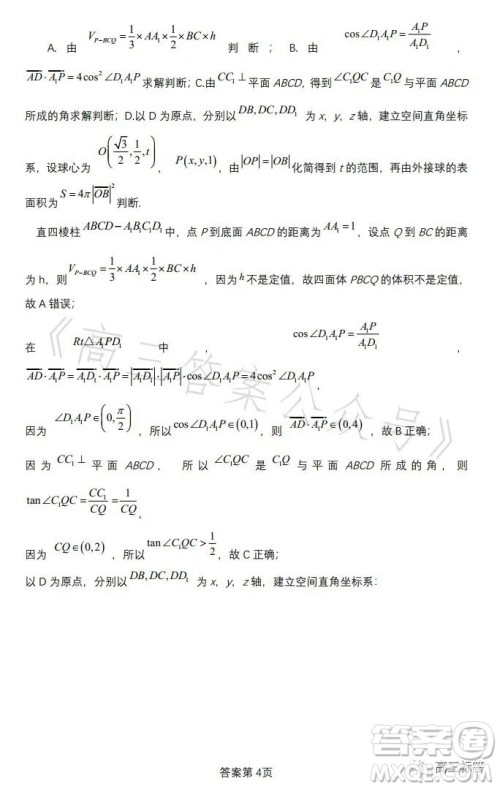 A. 由 V_{P-BCQ}=1/3×AA₁×1/2×BC×h 判断；B.由 cos∠D₁A₁P=A₁P/A₁D₁，
AD·A₁P=4cos²∠D₁A₁P求解判断；C.由CC₁⊥平面 ABCD，得到∠C₁QC是C₁Q与平面 ABCD
所成的角求解判断；D.以 D 为原点，分别以 DB,DC,DD₁ 为 x，y，z 轴，建立空间直角坐标
系，设球心为 O(√3/2,1/2,t)，P(x,y,1)，由|OP|=|OB|化简得到 t 的范围，再由外接球的表
面积为 S=4π|OB|² 判断.
直四棱柱 ABCD-A₁B₁C₁D₁ 中，点 P 到底面 ABCD 的距离为 AA₁=1，设点 Q 到 BC 的距离
为 h，则 V_{P-BCQ}=1/3×AA₁×1/2×BC×h，因为 h 不是定值，故四面体 PBCQ 的体积不是定值，
故 A 错误；
在 Rt△A₁PD₁ 中，cos∠D₁A₁P=A₁P/A₁D₁，
AD·A₁P=A₁D₁·A₁P=|A₁D₁|·|A₁P|·cos∠D₁A₁P=4cos²∠D₁A₁P，
因为 ∠D₁A₁P∈(0,π/2)，所以 cos∠D₁A₁P∈(0,1)，则 AD·A₁P∈(0,4)，故 B 正确；
因为 CC₁⊥ 平面 ABCD，所以 ∠C₁QC 是 C₁Q 与平面 ABCD 所成的角，则
tan∠C₁QC=CC₁/CQ=1/CQ，
因为 CQ∈(0,2)，所以 tan∠C₁QC>1/2，故 C 正确；
以 D 为原点，分别以 DB,DC,DD₁ 为 x，y，z 轴，建立空间直角坐标系：
《高三答案公众号》
答案第 4页
答案圈